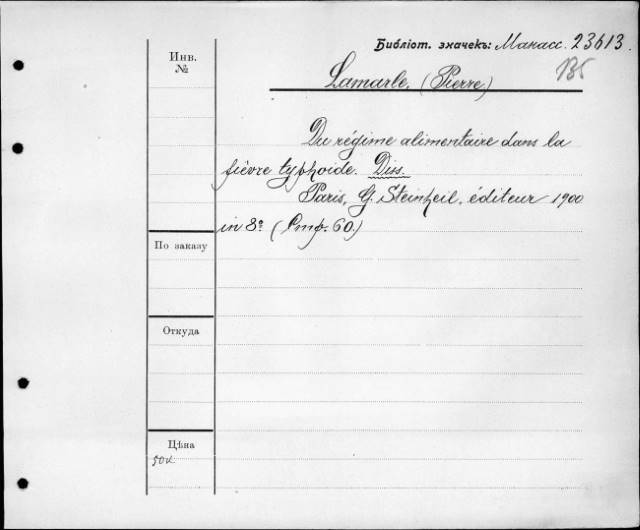 Библіот. значекъ: Манасс. 23613.
135
Инв.
№
Lamarle. (Pierre)
Du régime alimentaire dans la
fièvre typhoide. Diss.
Paris, G. Steinheil, éditeur 1900
in 8º (Стр. 60.)
По заказу
Откуда
Цѣна
50к